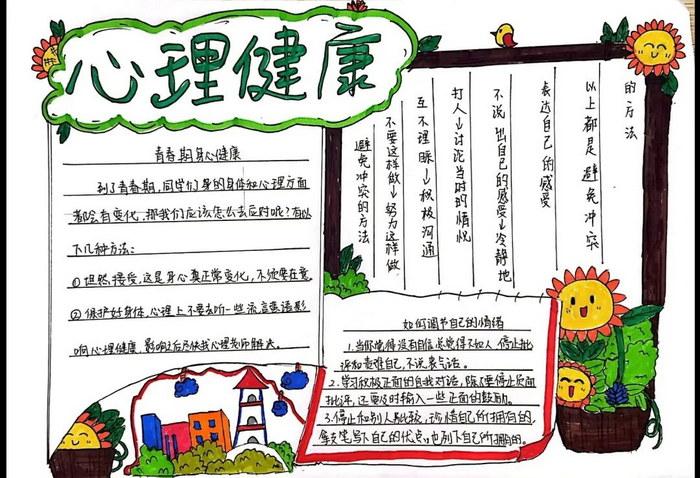 心理健康
青春期身心健康
到了青春期,同学们身的身体和心理方面
都会有变化,那我们应该怎么去应对呢?有以
下几种方法:
①坦然接受,这是身心真正常变化,不须要在意
②保护好身体,心理上不要去听一些流言蜚语影
响心理健康,影响之后尽快找心理老师解决。
避免冲突的方法
不要这样做→努力这样做
互不理睬→积极沟通
打人→讨论当时的情况
不说出自己的感受→冷静地
表达自己的感受
以上都是避免冲突
的方法
如何调节自己的情绪
1.当你觉得没有自信,总觉得不如人,停止批
评和责难自己,不说丧气话。
2.学习积极正面的自我对话,除了要停止负面
批评,还要及时输入一些正面的鼓励。
3.停止和别人比较,珍惜自己所拥有的,
拿支笔写下自己的优点,也列下自己所拥的。